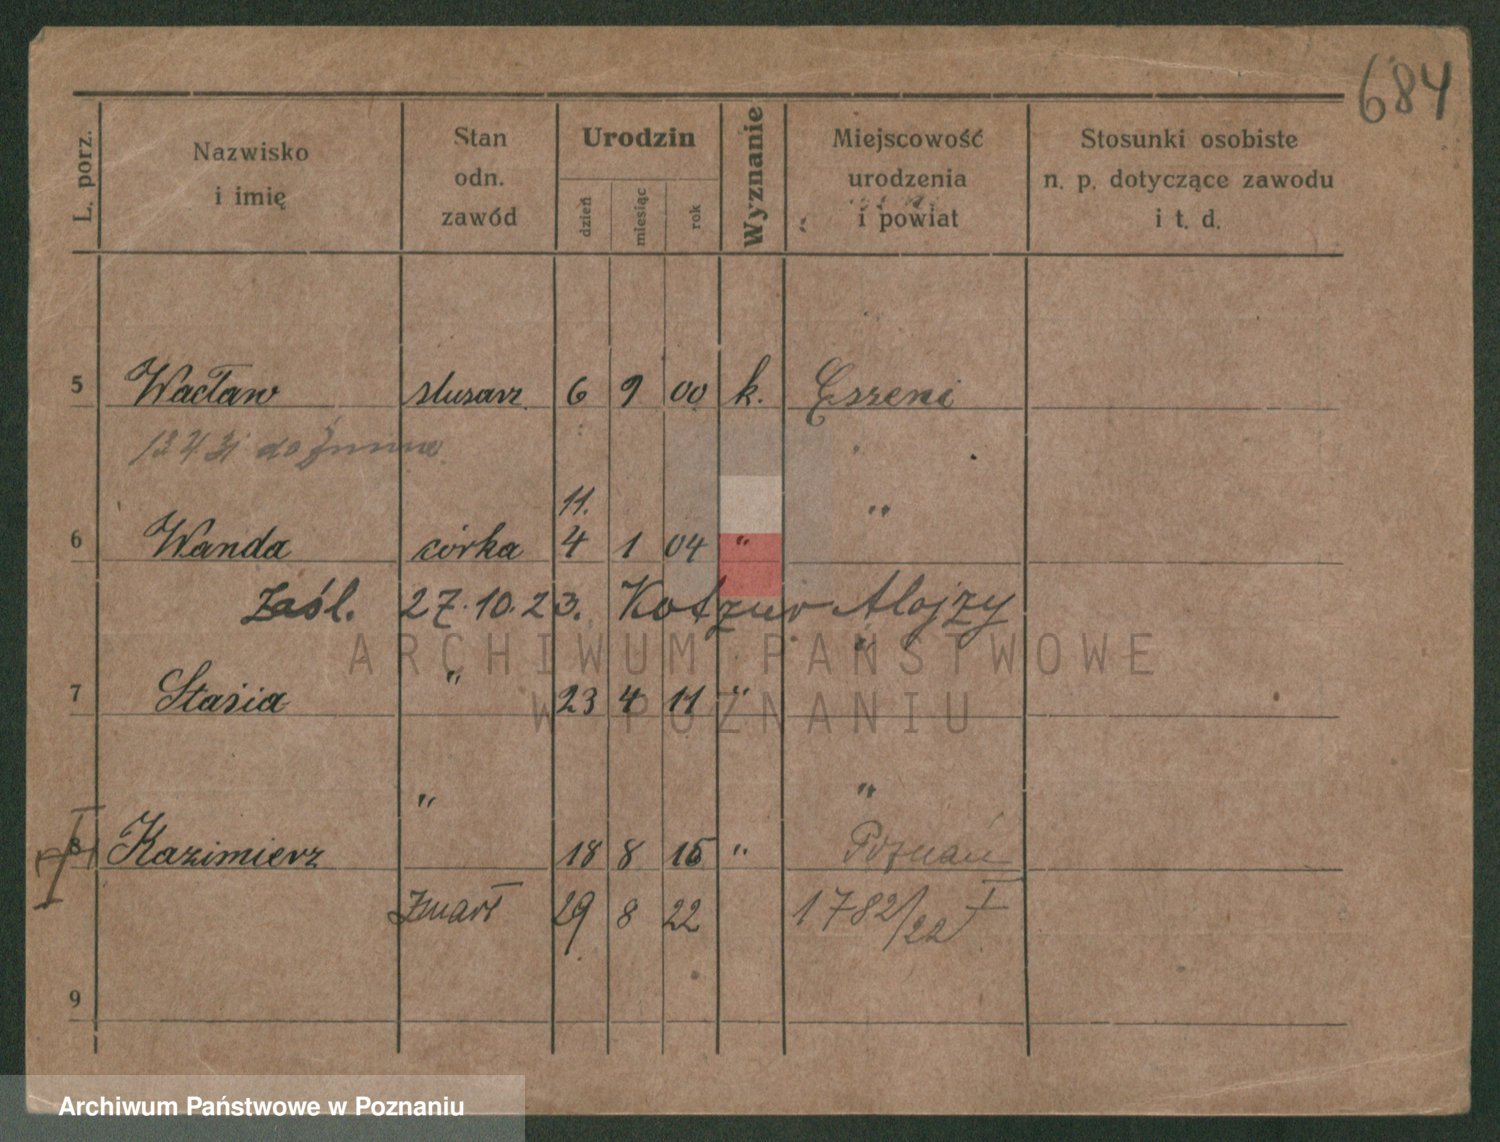 684
L. porz.
Nazwisko i imię
Stan odn. zawód
Urodzin
dzień miesiąc rok
Wyznanie
Miejscowość urodzenia i powiat
Stosunki osobiste n. p. dotyczące zawodu i t. d.
5 Wacław slusarz 6 9 00 k. Eszeni
do
11.
6 Wanda córka 4 1 04 " "
Zaśl. 27.10.23. Kotzur Alojzy
ARCHIWUM PAŃSTWOWE
W POZNANIU
7 Stasia " 23 4 11 " "
" "
8 Kazimierz 18 8 15 " Poznań
Zmarł 29 8 22 1782/22
9
Archiwum Państwowe w Poznaniu